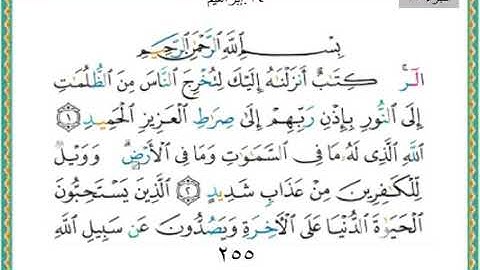 ١٤ - إبراهيم
بِسْمِ ٱللَّهِ ٱلرَّحْمَٰنِ ٱلرَّحِيمِ
الٓر ۚ كِتَٰبٌ أَنزَلْنَٰهُ إِلَيْكَ لِتُخْرِجَ ٱلنَّاسَ مِنَ ٱلظُّلُمَٰتِ
إِلَى ٱلنُّورِ بِإِذْنِ رَبِّهِمْ إِلَىٰ صِرَٰطِ ٱلْعَزِيزِ ٱلْحَمِيدِ ١
ٱللَّهِ ٱلَّذِى لَهُۥ مَا فِى ٱلسَّمَٰوَٰتِ وَمَا فِى ٱلْأَرْضِ ۗ وَوَيْلٌ
لِّلْكَٰفِرِينَ مِنْ عَذَابٍ شَدِيدٍ ٢ ٱلَّذِينَ يَسْتَحِبُّونَ
ٱلْحَيَوٰةَ ٱلدُّنْيَا عَلَى ٱلْءَاخِرَةِ وَيَصُدُّونَ عَن سَبِيلِ ٱللَّهِ
٢٥٥